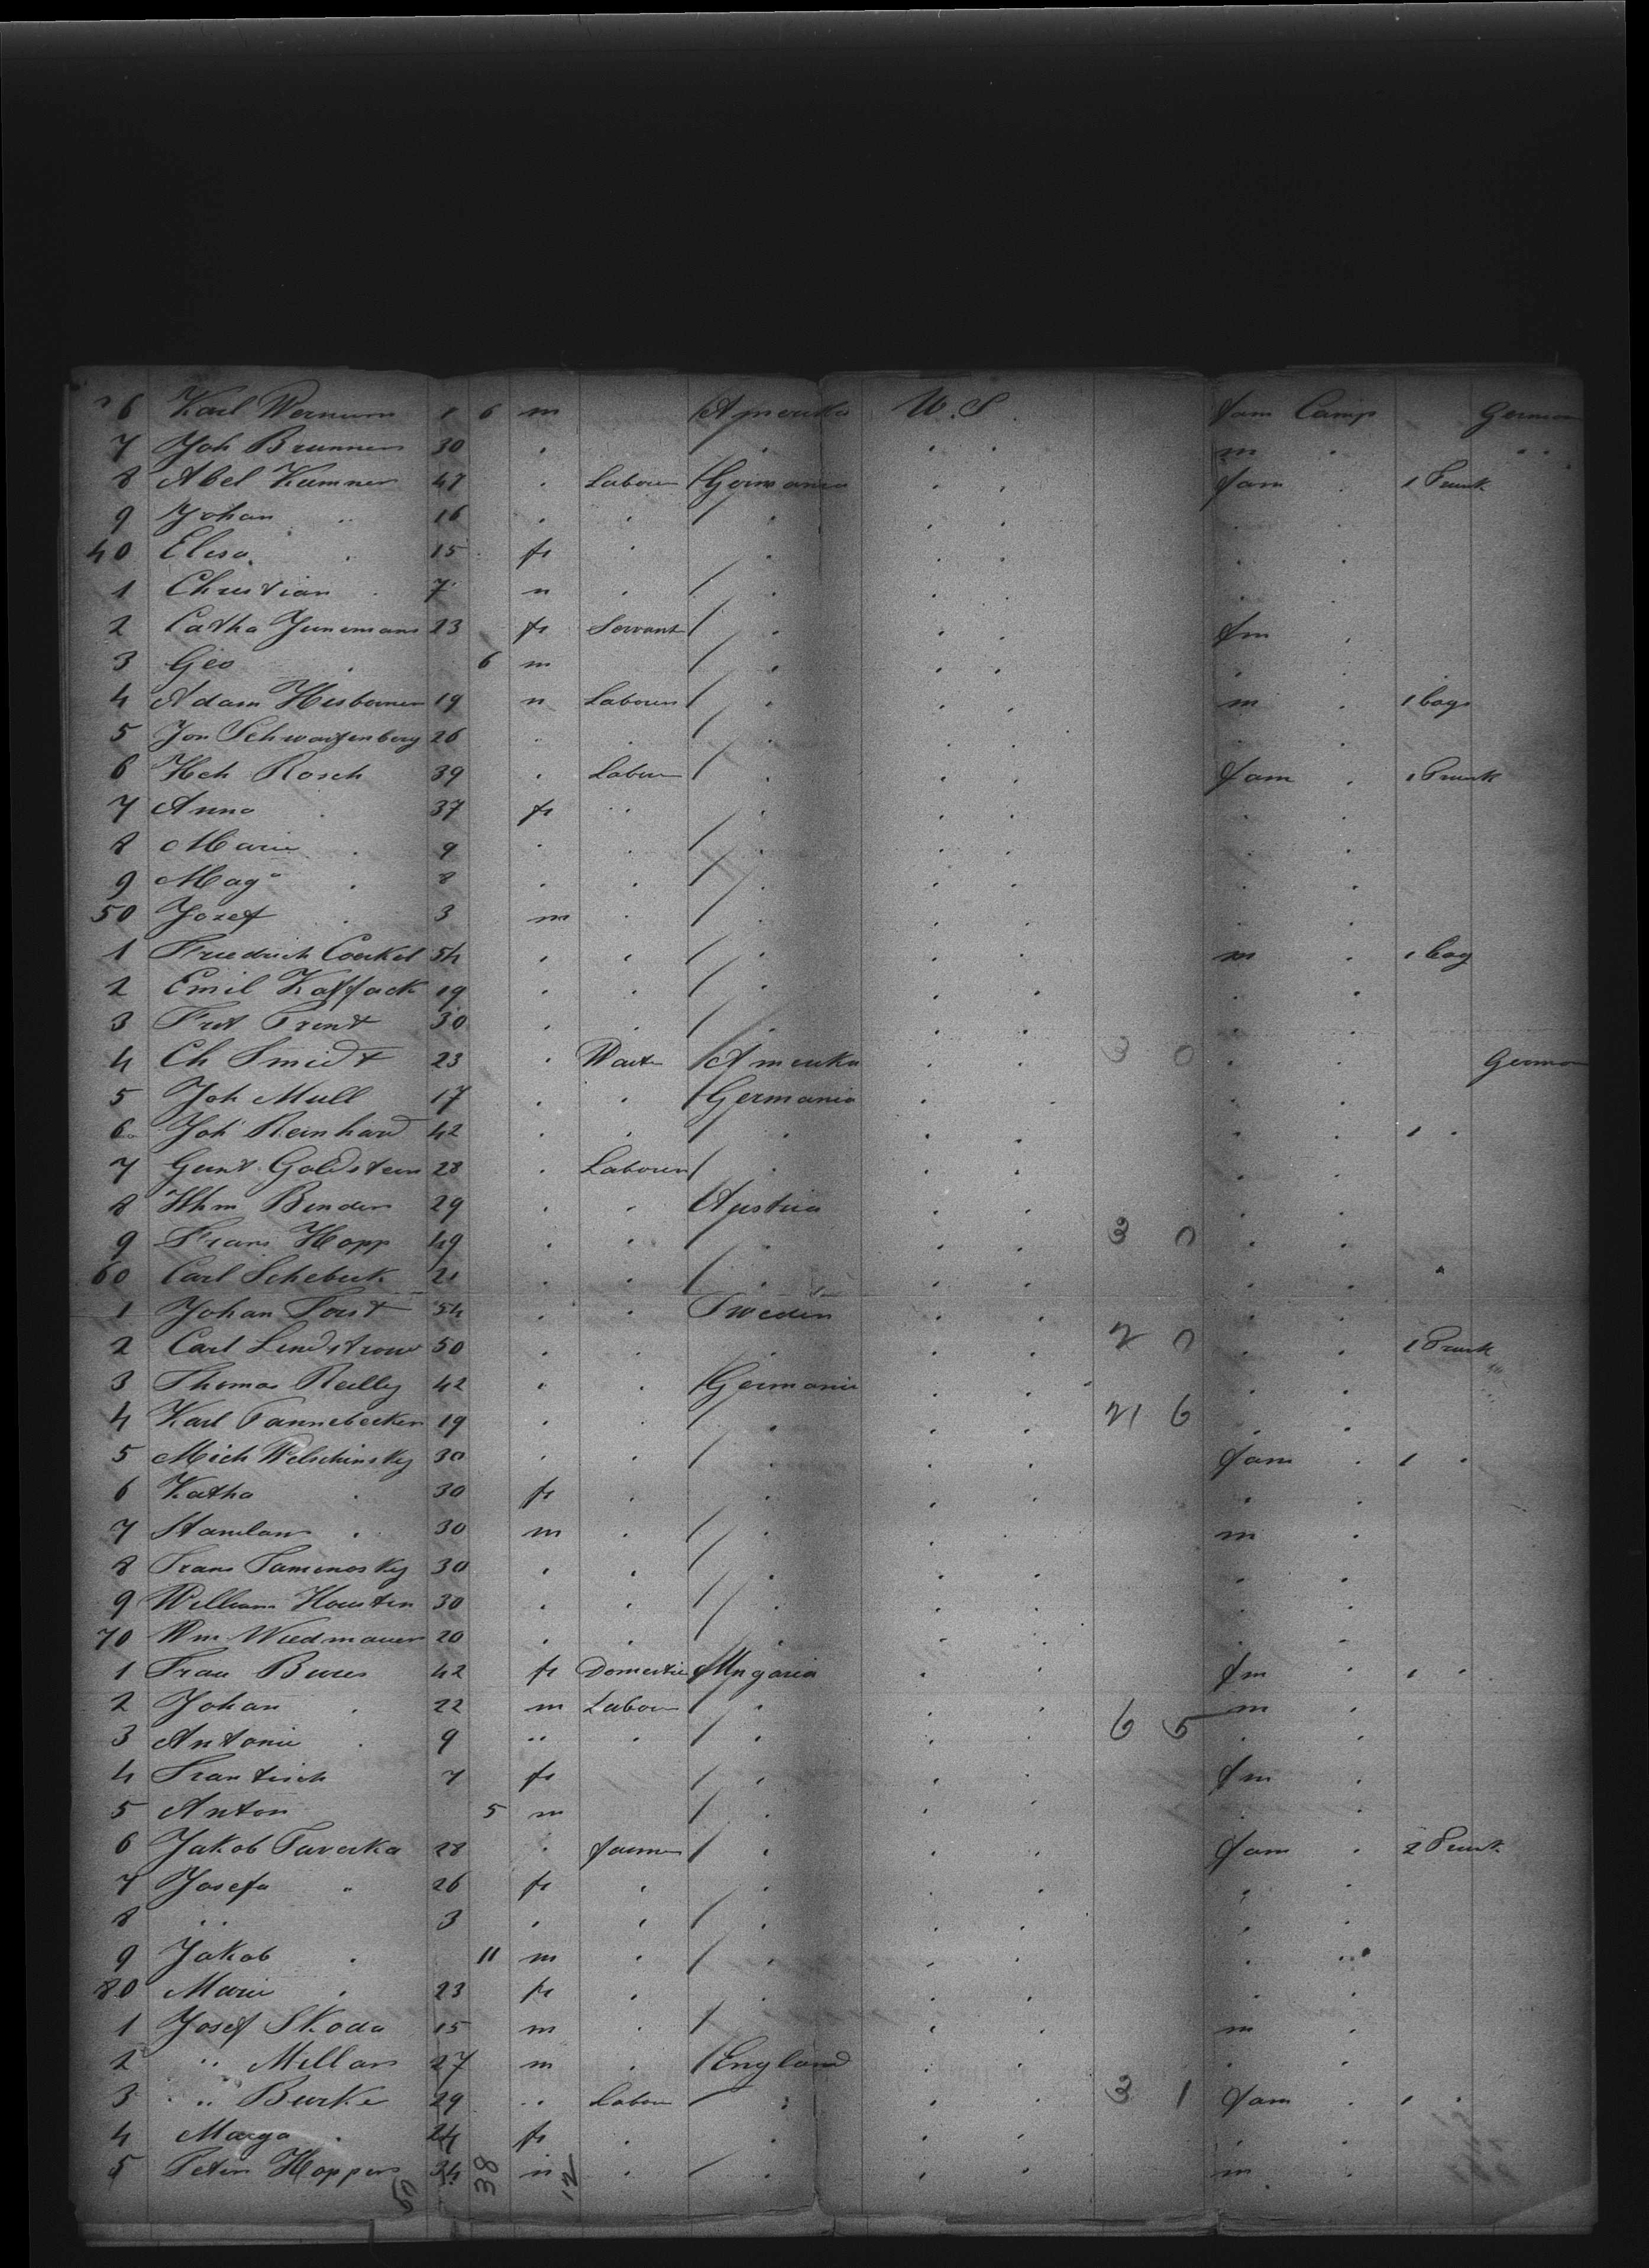 6 Karl Wernum 1 6 m Amerika U.S. fam Camp German
7 Joh Brunner 30 . . . . m . . .
8 Abel Kamner 47 . Labour Germania . . fam . 1 Trunk
9 Johan .. 16 . . . . . . .
40 Elisa . 15 fe . . . . . .
1 Christian . 7 m . . . . . .
2 Catha Junemans 23 fe Servant . . . fm .
3 Geo . 6 m . . . . .
4 Adam Hisborner 19 m Labourer . . . m . 1 bag
5 Jon Schwarzenberg 26 .. . . . . . .
6 Hch Rosch 39 . Labour . . . fam . 1 Trunk
7 Anna . 37 fe .. . . . . .
8 Marie . 9 . . . . . . .
9 Mag . 8 . . . . . . .
50 Jozef . 3 m . . . . . .
1 Friedrich Conkel 54 . . . . . m . 1 bag
2 Emil Kaffack 19 . . . . . . .
3 Fret Trent 30 . . . . . . .
4 Ch Smidt 23 . Waiter Amerika . . 3 0 . German
5 Joh Mull 17 . . Germania . . . .
6 Joh Reinhard 42 . . . . . . . 1 .
7 Gunt Goldstein 28 . Labourer . . . . .
8 Whm Binder 29 . . Austria . . . .
9 Frans Hopp 49 . . . . . 3 0 . .
60 Carl Schebeck 21 . . . . . . .
1 Johan Forst 54 . . Sweden . . . .
2 Carl Lindstrom 50 . . . . . 2 0 . . 1 Trunk
3 Thomas Reilly 42 . . Germania . . . .
4 Karl Tannebecker 19 . . . . . 21 6 . .
5 Mich Welschinsky 30 . . . . . fam . 1 .
6 Katha . 30 fe . . . . . .
7 Stanlaus . 30 m . . . . m .
8 Frans Tamenosky 30 . . . . . . .
9 William Houstin 30 . . . . . . .
70 Wm Wiedmauer 20 . . . . . . .
1 Frau Bures 42 fe Domestic Ungaria . . fm . 1 .
2 Johan . 22 m Labour . . . m .
3 Antonie . 9 .. . . . . 6 5 . .
4 Frantisek 7 fe . . . fm .
5 Anton 5 m . . . . .
6 Jakob Taverka 28 . farmer . . . fam . 2 Trunk
7 Josefa .. 26 fe . . . . . .
8 .. 3 . . . . . . .
9 Jakob . 11 m . . . . . .
80 Marie . 23 fe . . . . . .
1 Josef Skoda 15 m . . . m .
2 .. Millar 27 m . England . . . .
3 .. Burke 29 .. Labour . . . 3 1 fam . 1 .
4 Marga . 24 fe . . . . . .
5 Peter Hoppers 34 m . . . . m .
38 12